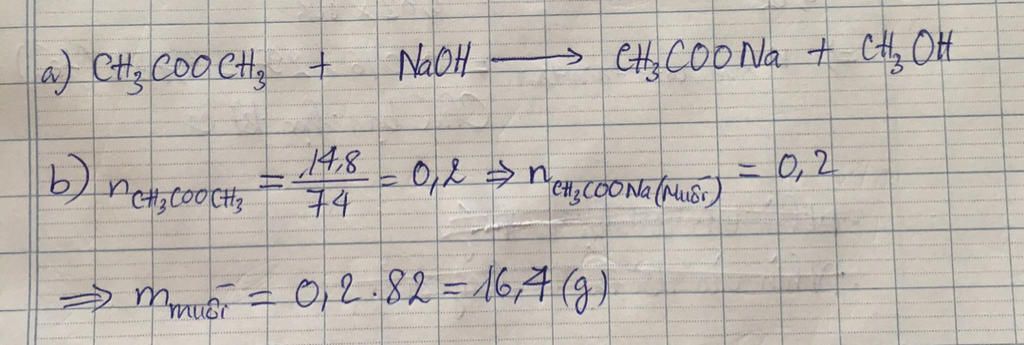 a) CH₃COOCH₃ + NaOH ⟶ CH₃COONa + CH₃OH
b) n CH₃COOCH₃ = 14,8/74 = 0,2 ⇒ n CH₃COONa (Muối) = 0,2
⇒ m muối = 0,2 . 82 = 16,4 (g)